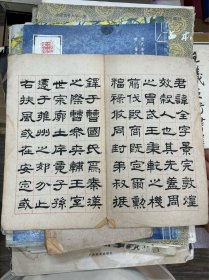 君諱全字景完敦煌
效穀人也其先蓋周
之胄武王秉乾之機
翦伐殷商既定爾勳
福祿攸同封弟叔振
鐸于曹國氏焉秦漢
之際曹參夾輔王室
世宗廓土斥竟子孫
遷于雍州之郊分止
右扶風或在安定或